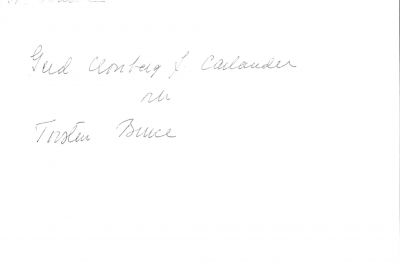 Gerd Cronberg f. Carlander
och
Torsten Bruce